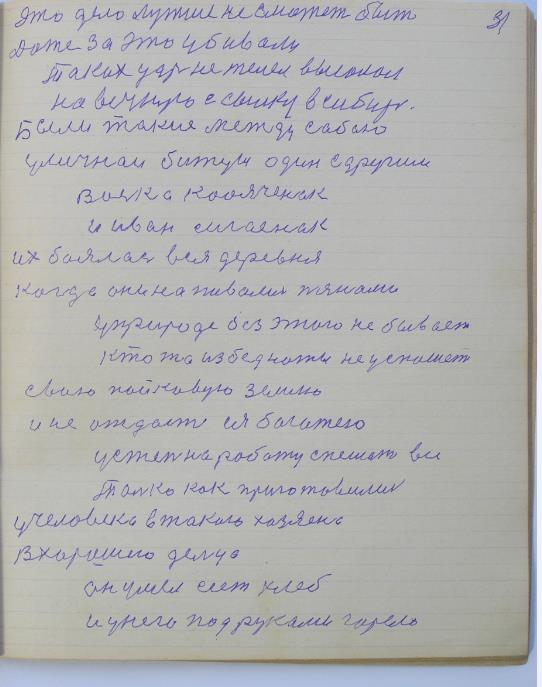 31
Это дело лутше не сможет быт
Даже за это убивали
Таких удр не телей высыкал
на вечную ссылку в сибирь.
Были такие между сабою
уличнаи битуги один здругим
Воська Кооляченак
и иван сигаенак
их боялас вся деревня
когда они на пивалис пянами
уприроде без этого не бывает
кто та избедноти не успашет
сваю пайковую землю
и не отдаст ея багатею
устеп на работу спешат вси
Талко как приготовилис
учеловека втакого хазяена
Вхорошего делца
он умел сеет хлеб
и унего под руками гарело